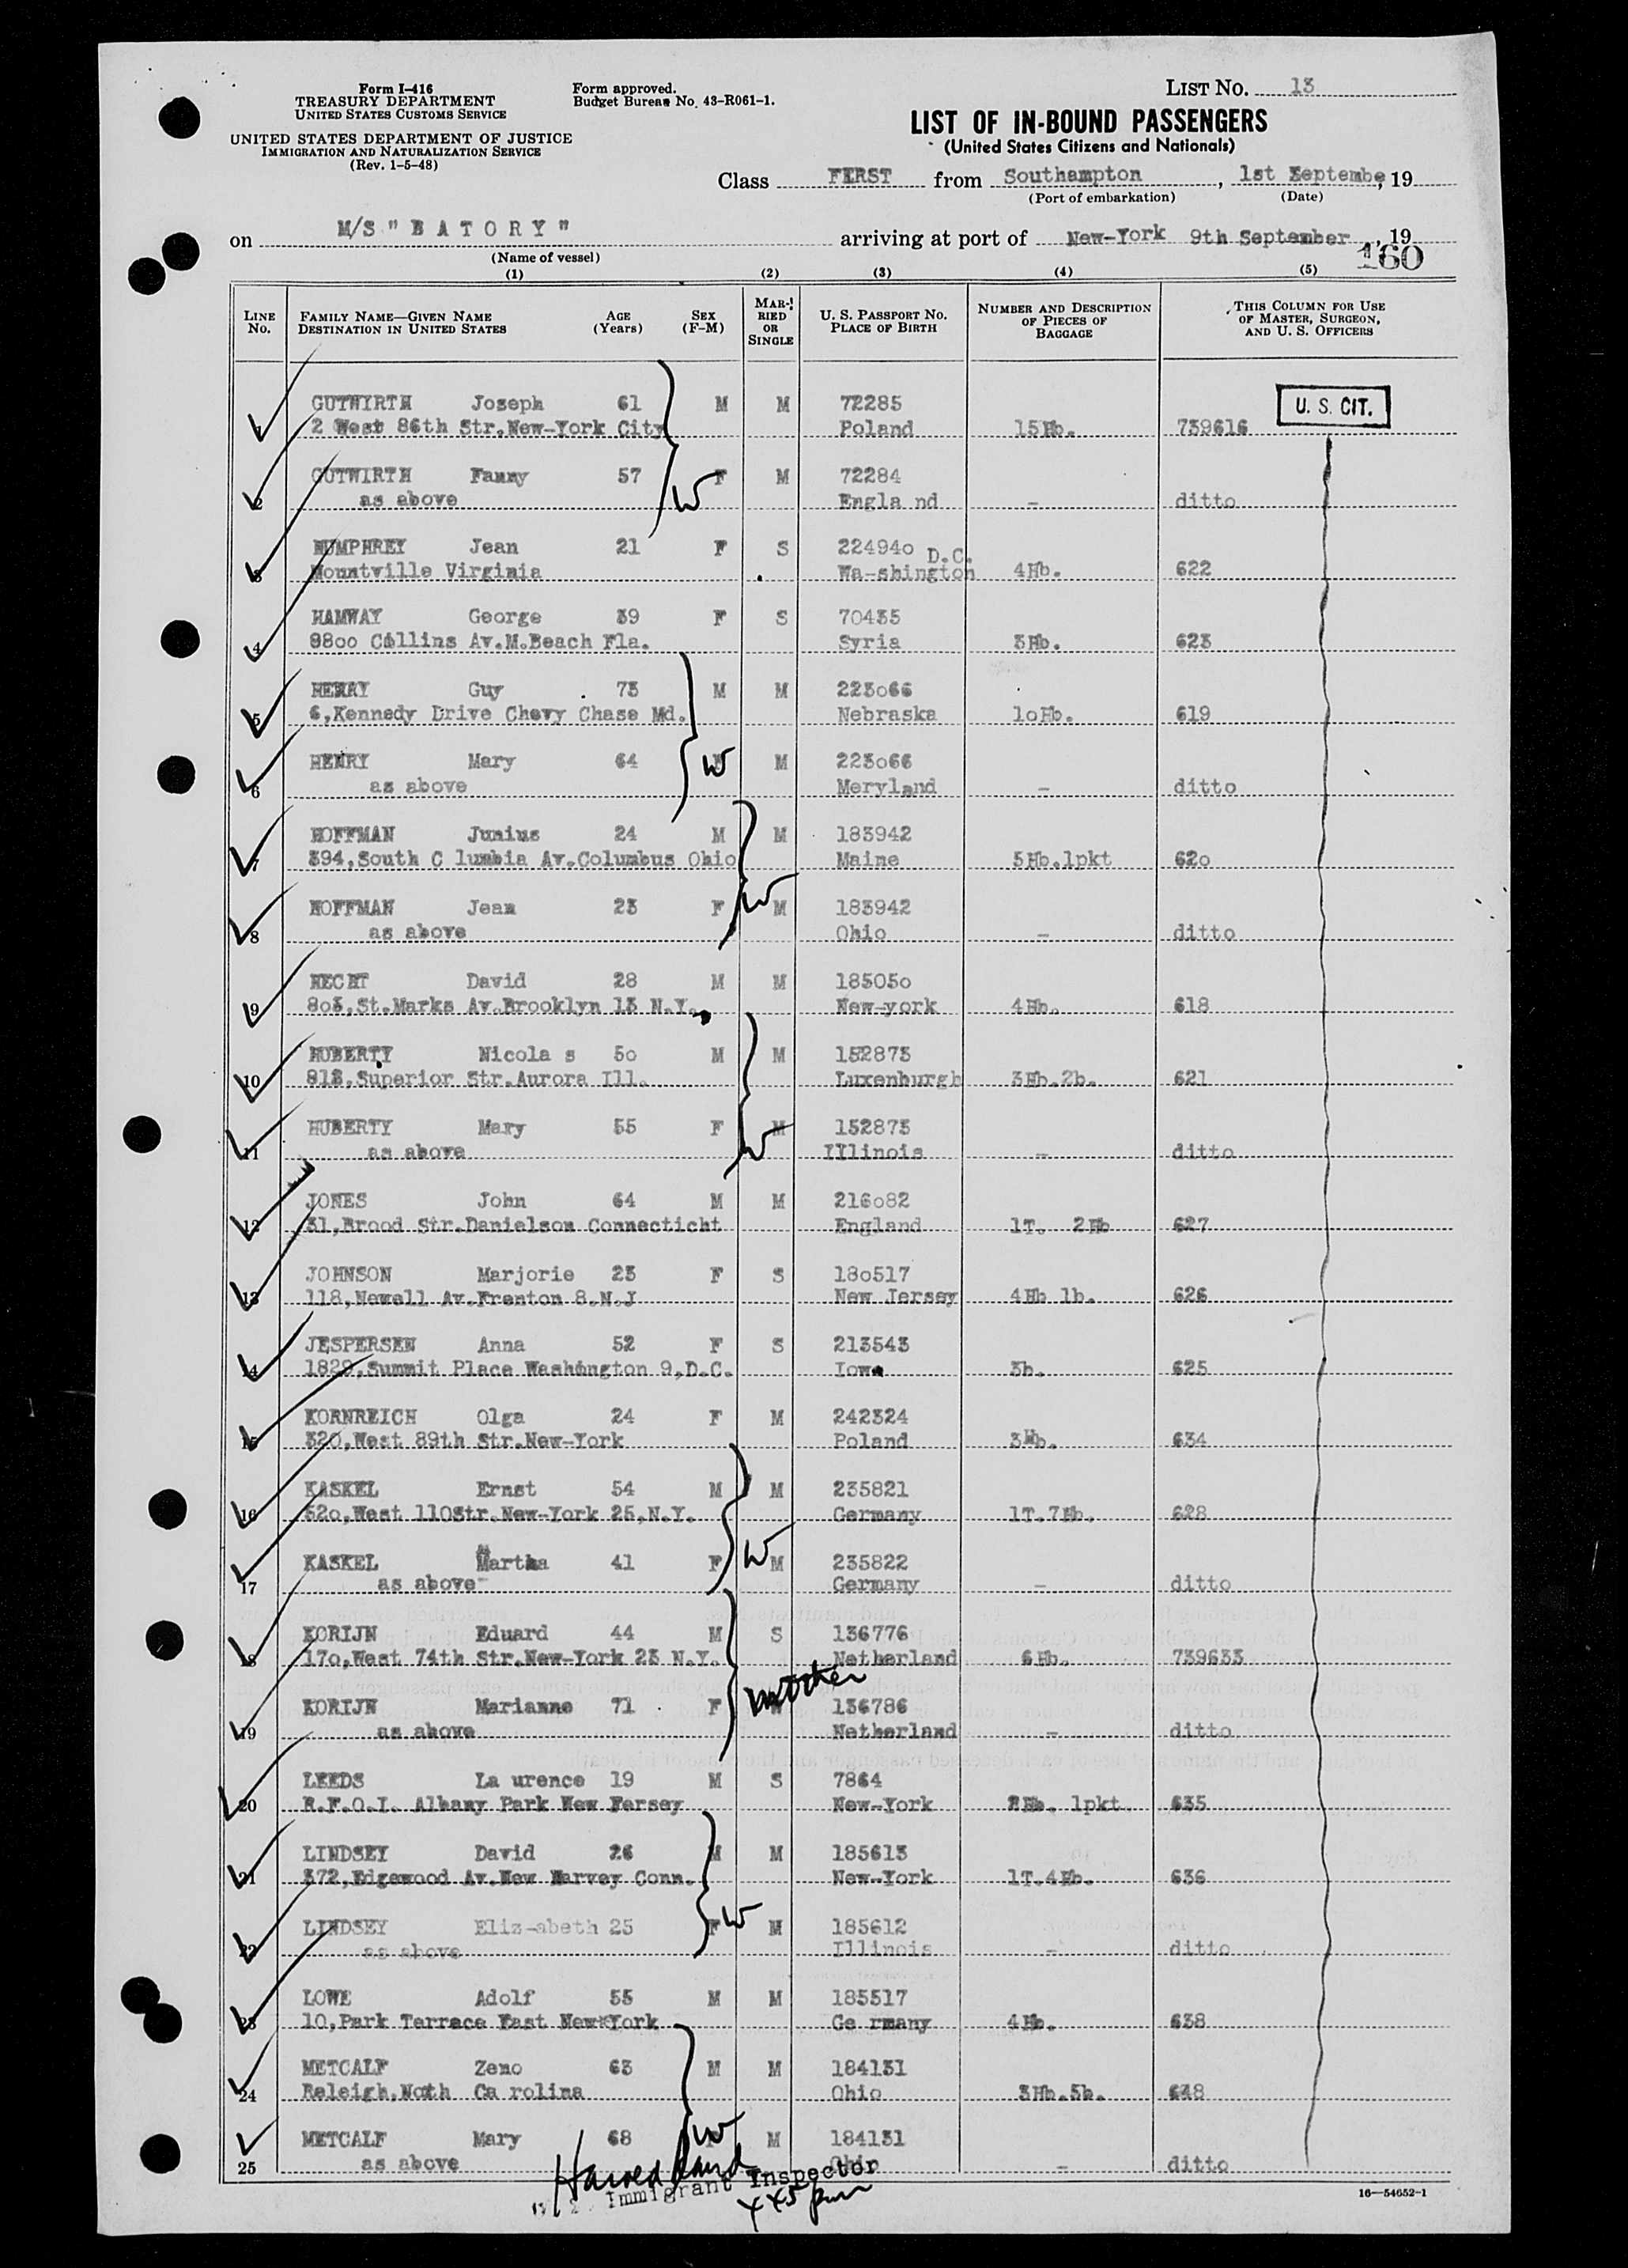 Form I-416
TREASURY DEPARTMENT
UNITED STATES CUSTOMS SERVICE
UNITED STATES DEPARTMENT OF JUSTICE
IMMIGRATION AND NATURALIZATION SERVICE
(Rev. 1-5-48)
Form approved.
Budget Bureau No. 43-R061-1.
LIST NO. 13
LIST OF IN-BOUND PASSENGERS
(United States Citizens and Nationals)
Class FIRST from Southampton, 1st Septembe, 19
(Port of embarkation) (Date)
on M/S "BATORY" arriving at port of New-York 9th September, 19
(Name of vessel)
160
(1) (2) (3) (4) (5)
LINE NO. FAMILY NAME—GIVEN NAME DESTINATION IN UNITED STATES AGE (Years) SEX (F-M) MARRIED OR SINGLE U. S. PASSPORT NO. PLACE OF BIRTH NUMBER AND DESCRIPTION OF PIECES OF BAGGAGE THIS COLUMN FOR USE OF MASTER, SURGEON, AND U. S. OFFICERS
U. S. CIT.
GUTWIRTH Joseph 61 M M 72285
1 2 West 86th Str.New-York City Poland 15Hb. 739616
GUTWIRTH Fanny 57 W F M 72284
2 as above Engla nd - ditto
HUMPHREY Jean 21 F S 224940 D.C.
3 Mountville Virginia Wa-shington 4Hb. 622
HAMWAY George 39 F S 70435
4 9800 Collins Av.M.Beach Fla. Syria 3Hb. 623
HENRY Guy 73 M M 223o66
5 6,Kennedy Drive Chevy Chase Md. Nebraska 1oHb. 619
HENRY Mary 64 W M 223o66
6 as above Meryland - ditto
HOFFMAN Junius 24 M M 183942
7 394,South C lumbia Av.Columbus Ohio Maine 5Hb.1pkt 62o
HOFFMAN Jean 23 F W M 183942
8 as above Ohio - ditto
HECHT David 28 M M 185o5o
9 8o3,St.Marks Av.Brooklyn 13 N.Y. New-york 4Hb. 618
HUBERTY Nicola s 5o M M 152873
10 Superior Str.Aurora Ill. Luxenburgh 3Hb.2b. 621
HUBERTY Mary 55 F W M 152873
11 as above Illinois - ditto
JONES John 64 M M 216o82
12 31,Brood Str.Danielson Connecticht England 1T. 2Hb 627
JOHNSON Marjorie 23 F S 18o517
13 118,Newell Av.Frenton 8.N.J New Jersey 4Hb 1b. 626
JESPERSEN Anna 52 F S 213543
14 1829,Summit Place Washington 9,D.C. Iowa 3b. 625
KORNREICH Olga 24 F M 242324
15 320,West 89th Str.New-York Poland 3Hb. 634
KASKEL Ernst 54 M M 235821
16 52o,West 110Str.New-York 25,N.Y. Germany 1T.7Hb. 628
KASKEL Martha 41 F W M 235822
17 as above Germany - ditto
KORIJN Eduard 44 M S 136776
18 17o,West 74th Str.New-York 23 N.Y. Netherland 6Hb. 739633
KORIJN Marianne 71 F mother 136786
19 as above Netherland - ditto
LEEDS La urence 19 M S 7864
20 R.F.O.I. Albany Park New Fersey New-York 2Hb. 1pkt 635
LINDSEY David 26 M M 185613
21 372,Edgewood Av.New Harvey Conn. New-York 1T.4Hb. 636
LINDSEY Eliz-abeth 25 F W M 185612
22 as above Illinois - ditto
LOWE Adolf 55 M M 185517
23 10,Park Terrace East New-York Ge rmany 4Hb. 638
METCALF Zeno 63 M M 184131
24 Raleigh,Noth Ca rolina Ohio 3Hb.5b. 648
METCALF Mary 68 W M 184131
25 as above Ohio - ditto
Immigrant Inspector
16—54652-1